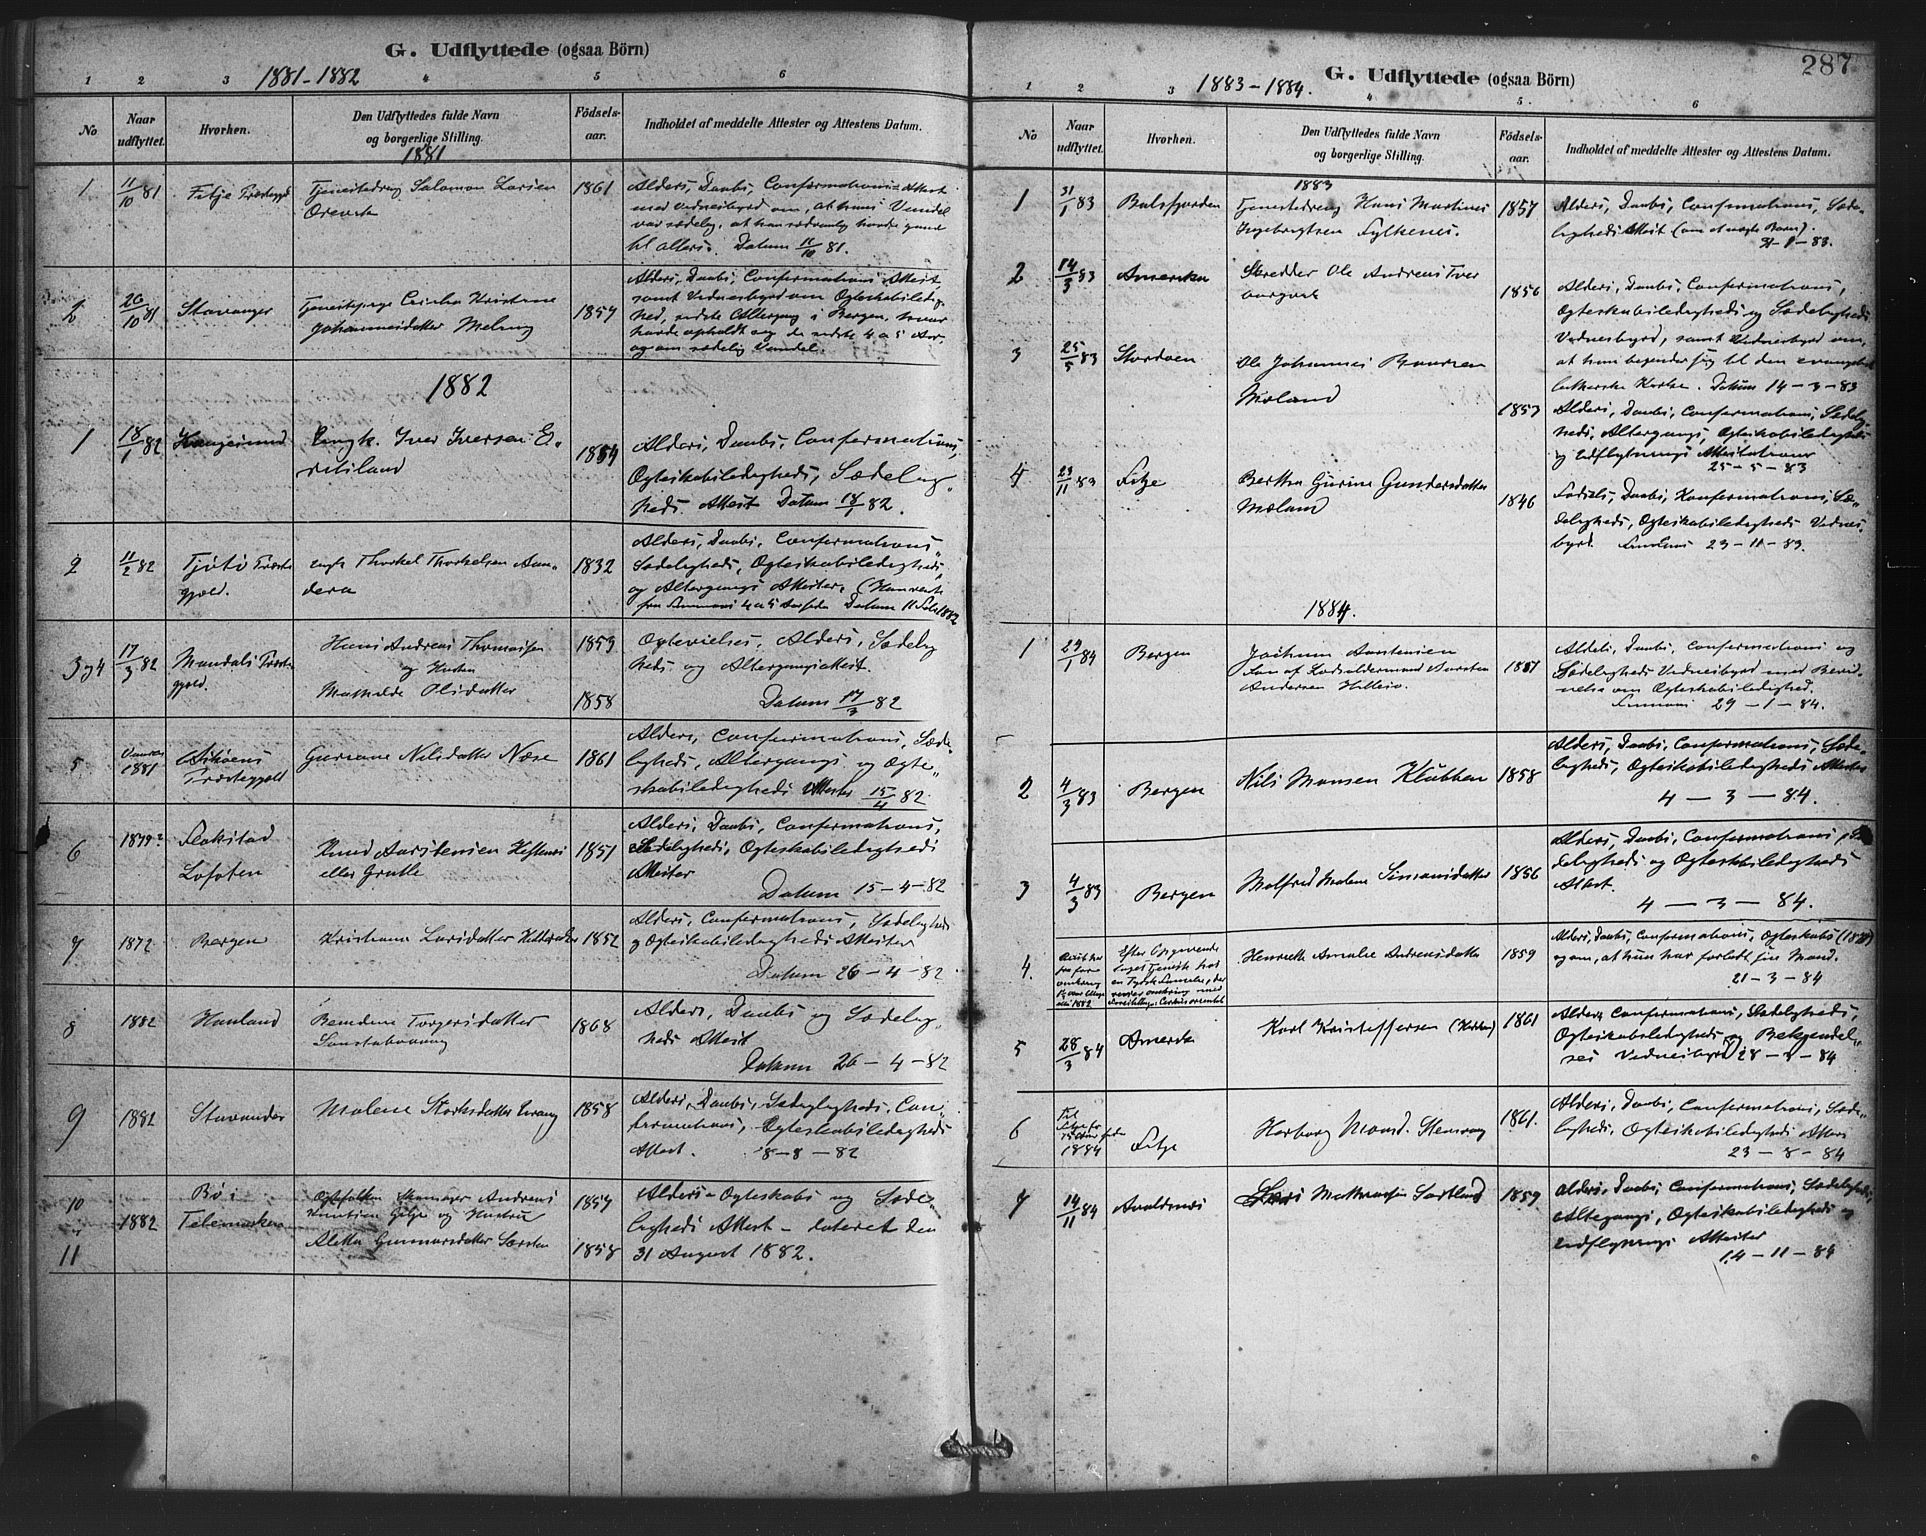 G. Udflyttede (ogsaa Börn)
1881-1882
1 2 3 4 5 6
No
Naar udflyttet.
Hvorhen.
Den Udflyttedes fulde Navn og borgerlige Stilling.
Födsels-aar.
Indholdet af meddelte Attester og Attestens Datum.
1881
1 11/10 81 Fitje Præstegjd Tjenestedreng Salomon Larsen 1861 Alders, Daabs, Confermations-Attest
med Vidnesbyrd om, at hans Vandel
var sædelig, at han sædvanlig havde gaaet
til alters. Datum 11/10 81.
2 26/10 81 Stavanger Tjenestepige Kristine
Johannesdatter Meling 1857 Alders, Daabs, Confermations Attest,
samt Vidnesbyrd om Ogteskabsledig
hed, sidste Altergang i Bergen, hvor
havde opholdt sig de sidste 4 a 5 Aar,
og om sædelig Vandel.
1882
1 18/1 82 Ungk. Iver Iversen
1854 Alders, Daabs, Confermations,
Ogteskabsledigheds, Sædelig
heds. Attest Datum 18/1 82.
2 11/2 82 Tjötö Præste
gjeld. ungk Thorkel Thorkelsen 1832 Alders, Daabs, Confermations
Sædeligheds, Ogteskabsledigheds
og Altergangs Attester,
fra 4 a 5 Aar siden Datum 11 Feb 1882
3 og 4 17/3 82 Mandals Præste
gjeld. Hans Andreas Thomassen
og Hustru
Mathilde Olsdatter 1853
1858 Ogtevielses, Alders, Sædelig
heds og Altergangsattest.
Datum 17/3 82
5 1881 Askøens
Præstegjeld Guriane Nilsdatter Næse 1861 Alders, Confermations, Sæde
ligheds, Altergangs og Ogte
skabsledigheds Attester 15/4 82
6 1879? Flakstad
Lofoten Knud Aarstensen
eller Grutle 1851 Alders, Daabs, Confermations,
Sædeligheds, Ogteskabsledigheds
Attester
Datum 15-4-82
7 1872 Bergen Kristiane Larsdatter 1852 Alders, Confermations, Sædeligheds
og Ogteskabsledigheds Attester
Datum 26-4-82
8 1882 Torgersdatter
1868 Alders, Daabs og Sædelig
heds Attest
Datum 26-4-82
9 1882 Malene 1858 Alders, Daabs, Sædeligheds, Con
fermations, Ogteskabsledigheds
Attest. 8-8-82
10
og
11 1882 Bø i
Telemarken Ogtefolkene Skomager Andreas
og Hustru
Gunnarsdatter 1857
1858 Alders- Ogteskabs og Sæde
ligheds Attest - dateret den
31 August 1882.
287
G. Udflyttede (ogsaa Börn)
1883-1884.
1 2 3 4 5. 6
No
Naar udflyttet.
Hvorhen.
Den Udflyttedes fulde Navn og borgerlige Stilling.
Födsels-aar.
Indholdet af meddelte Attester og Attestens Datum.
1883
1 31/1 83 Balsfjorden Tjenestedreng Hans Martines
Ingebrigtsen Fylkenes. 1857 Alders, Daabs, Confermations, Sæde
ligheds Attest (om et uægte Barn).
31-1-83.
2 14/3 83 Amerika Skredder Ole Andreas
1856 Alders, Daabs, Confermations,
Ogteskabsledigheds og Sædeligheds
Vidnesbyrd, samt Vidnesbyrd om,
at han begiver sig til den evangelisk
lutherske Kirke. Datum 14-3-83
3 25/5 83 Stordöen Ole Johannes
Mæland 1853 Alders, Daabs, Confermations, Sædelig
heds, Altergangs, Ogteskabsledigheds
og Udflytnings Attestation
25-5-83
4 23/11 83 Fitje Bertha Gurine Gundersdatter
Mæland 1846 Fødsels, Daabs, Konfermations, Sæ
deligheds, Ogteskabsledigheds Vidnes
byrd. 23-11-83.
1884.
1 29/1 84 Bergen Jochum Aarstensen
Søn af Aarsten
Andersen 1861 Alders, Daabs, Confermations og
Sædeligheds Vidnesbyrd med
om Ogteskabsledighed.
29-1-84.
2 4/3 83 Bergen Nils Monsen Klubben 1858 Alders, Daabs, Confermations, Sæde
ligheds, Ogteskabsledigheds Attester
4-3-84.
3 4/3 83 Bergen Malfred Malene Simonsdatter 1856 Alders, Daabs, Confermations, Sæ
deligheds og Ogteskabsledigheds
Attest.
4-3-84.
4. 1882 Efter Opgivende
Henrikke Amalie Andreasdatter 1859 Alders, Daabs, Confermations, Ogteskabs
og om, at hun har forladt sin Mand.
21-3-84
5 28/3 84 Amerika Karl Kristoffersen 1861 Alders, Confermations, Sædeligheds,
Ogteskabsledigheds og Bekjendel
ses Vidnesbyrd 28-3-84
6 1884 Fitje 1861. Alders, Daabs, Confermations, Sæde
ligheds, Ogteskabsledigheds Attest
23-8-84
7 14/11 84 Avaldsnes Lars Mathiasen Sortland 1859 Alders, Daabs, Confermations, Sædeligheds,
Altergangs, Ogteskabsledigheds og
Udflytnings Attester
14-11-84